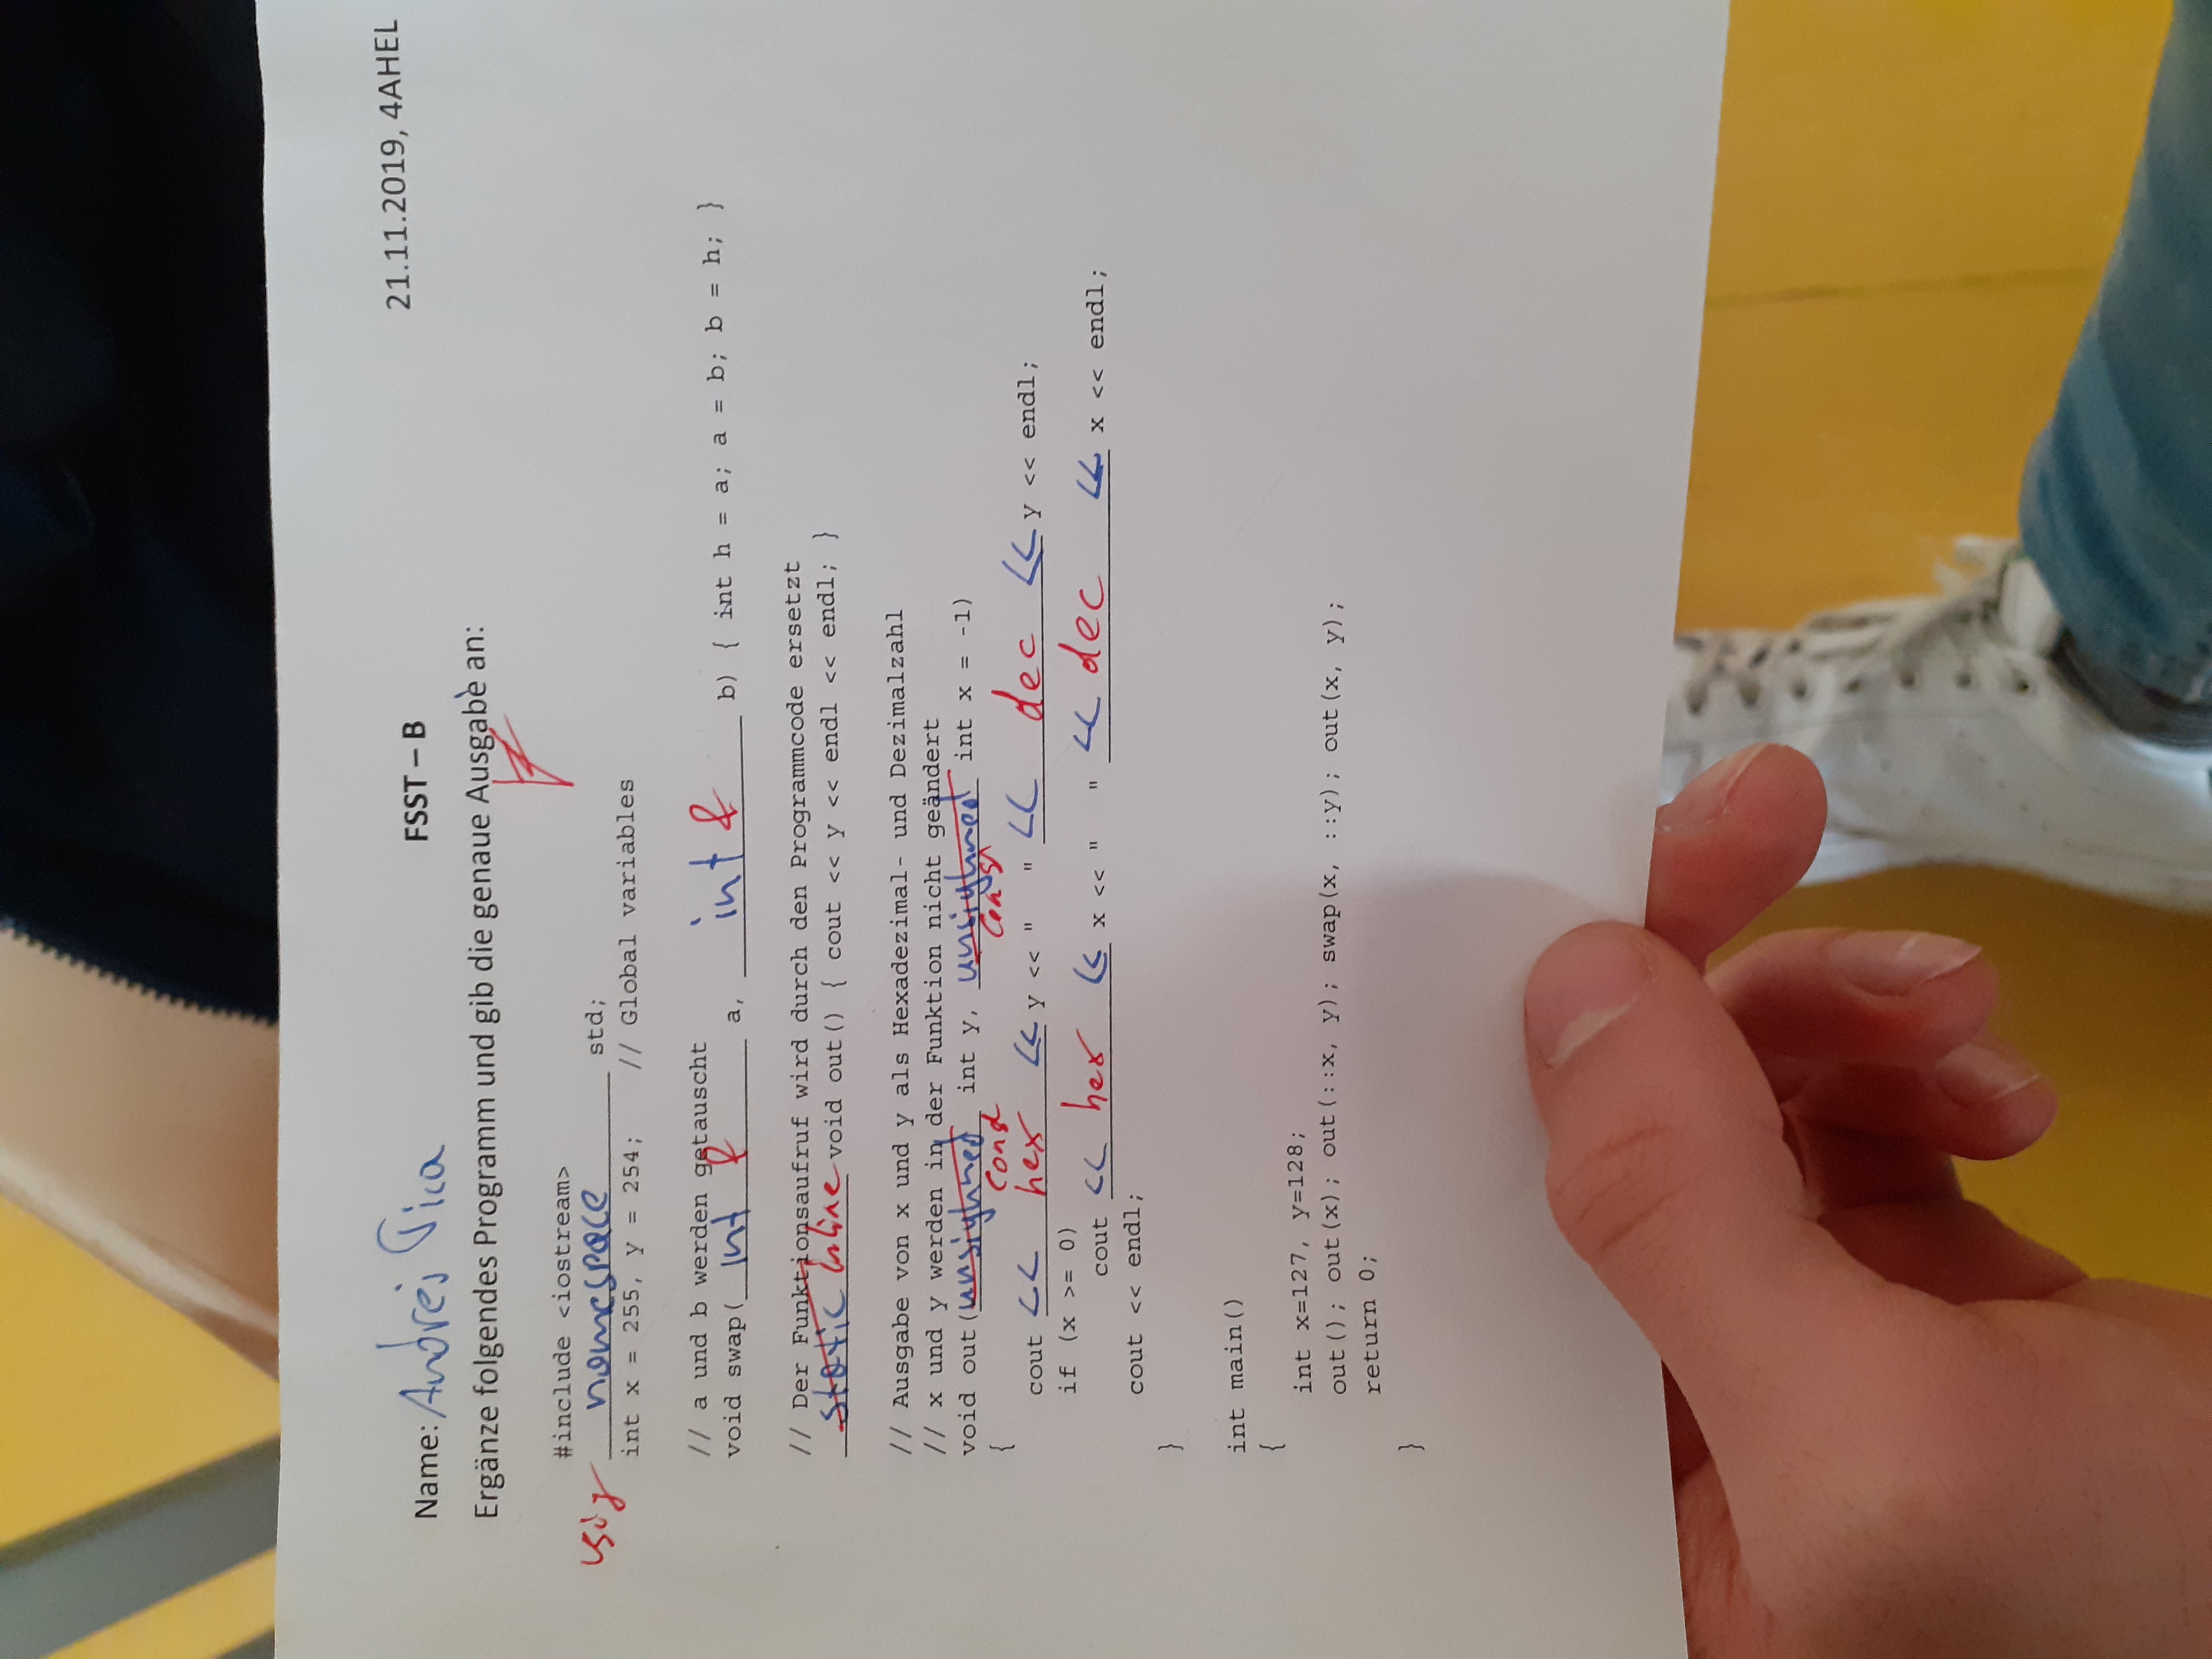 21.11.2019, 4AHEL
Name: Andrej Tica FSST – B
Ergänze folgendes Programm und gib die genaue Ausgabe an:
#include <iostream>
usig nomespace std;
int x = 255, y = 254; // Global variables
// a und b werden getauscht
void swap( int & a, int & b) { int h = a; a = b; b = h; }
// Der Funktionsaufruf wird durch den Programmcode ersetzt
static inline void out() { cout << y << endl << endl; }
// Ausgabe von x und y als Hexadezimal- und Dezimalzahl
// x und y werden in der Funktion nicht geändert
void out(unsighned int y, unsighned int x = -1)
const const
{
cout << hex << y << " " << dec << y << endl;
if (x >= 0)
cout << hex << x << " " << dec << x << endl;
cout << endl;
}
int main()
{
int x=127, y=128;
out(); out(x); out(::x, y); swap(x, ::y); out(x, y);
return 0;
}